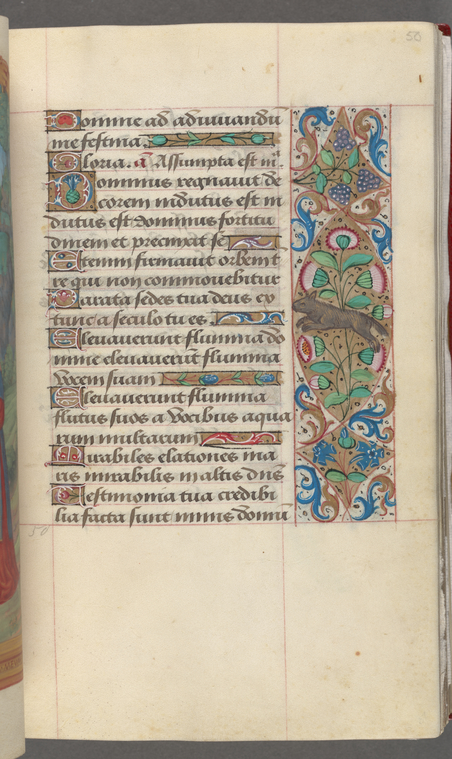 50
Domine ad adiuvandū
me festina.
Gloria. a Assumpta est m̄.
Dominus regnavit de
corem indutus est in
dutus est dominus fortitu
dinem et precinxit se
Etenim firmavit orbem t
re qui non commovebitur
Parata sedes tua deus ex
tunc a seculo tu es.
Elevaverunt flumina do
mine elevaverūt flumina
vocem suam
Elevaverunt flumina
fluctus suos a vocibus aqua
rum multarum
Mirabiles elationes ma
ris mirabilis in altis dn̄s
Testimonia tua credibi
lia facta sunt nimis domū
50